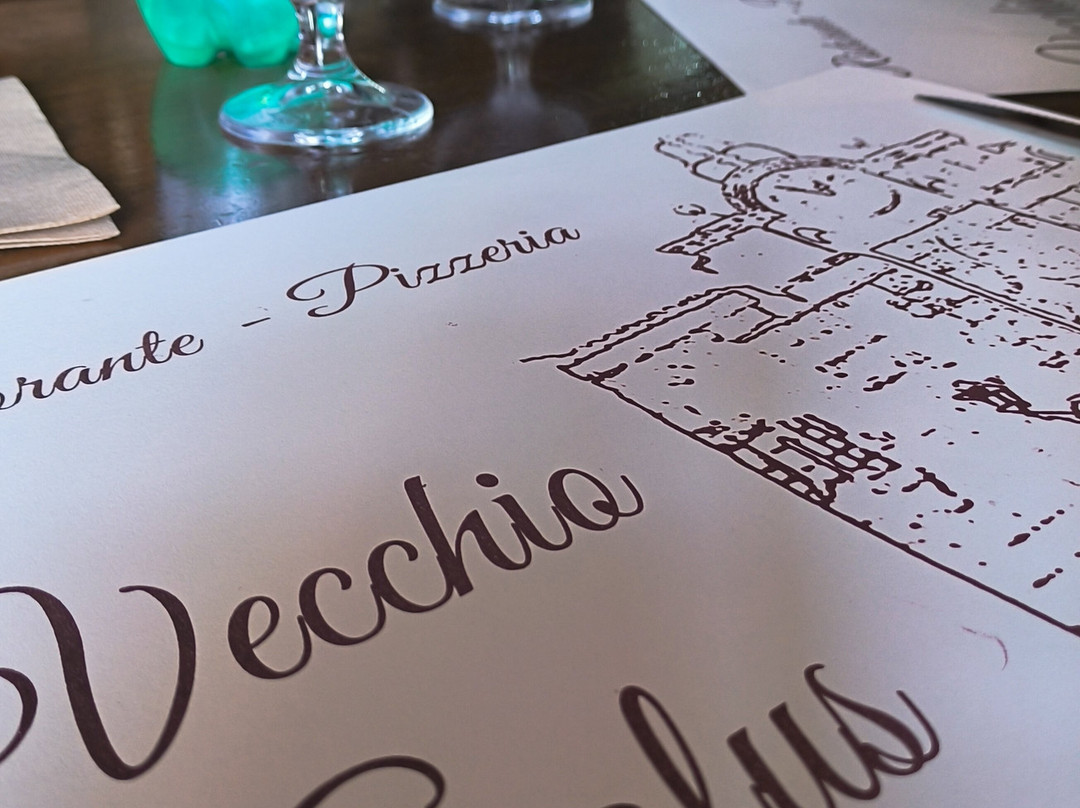 rante - Pizzeria
Vecchio
lus